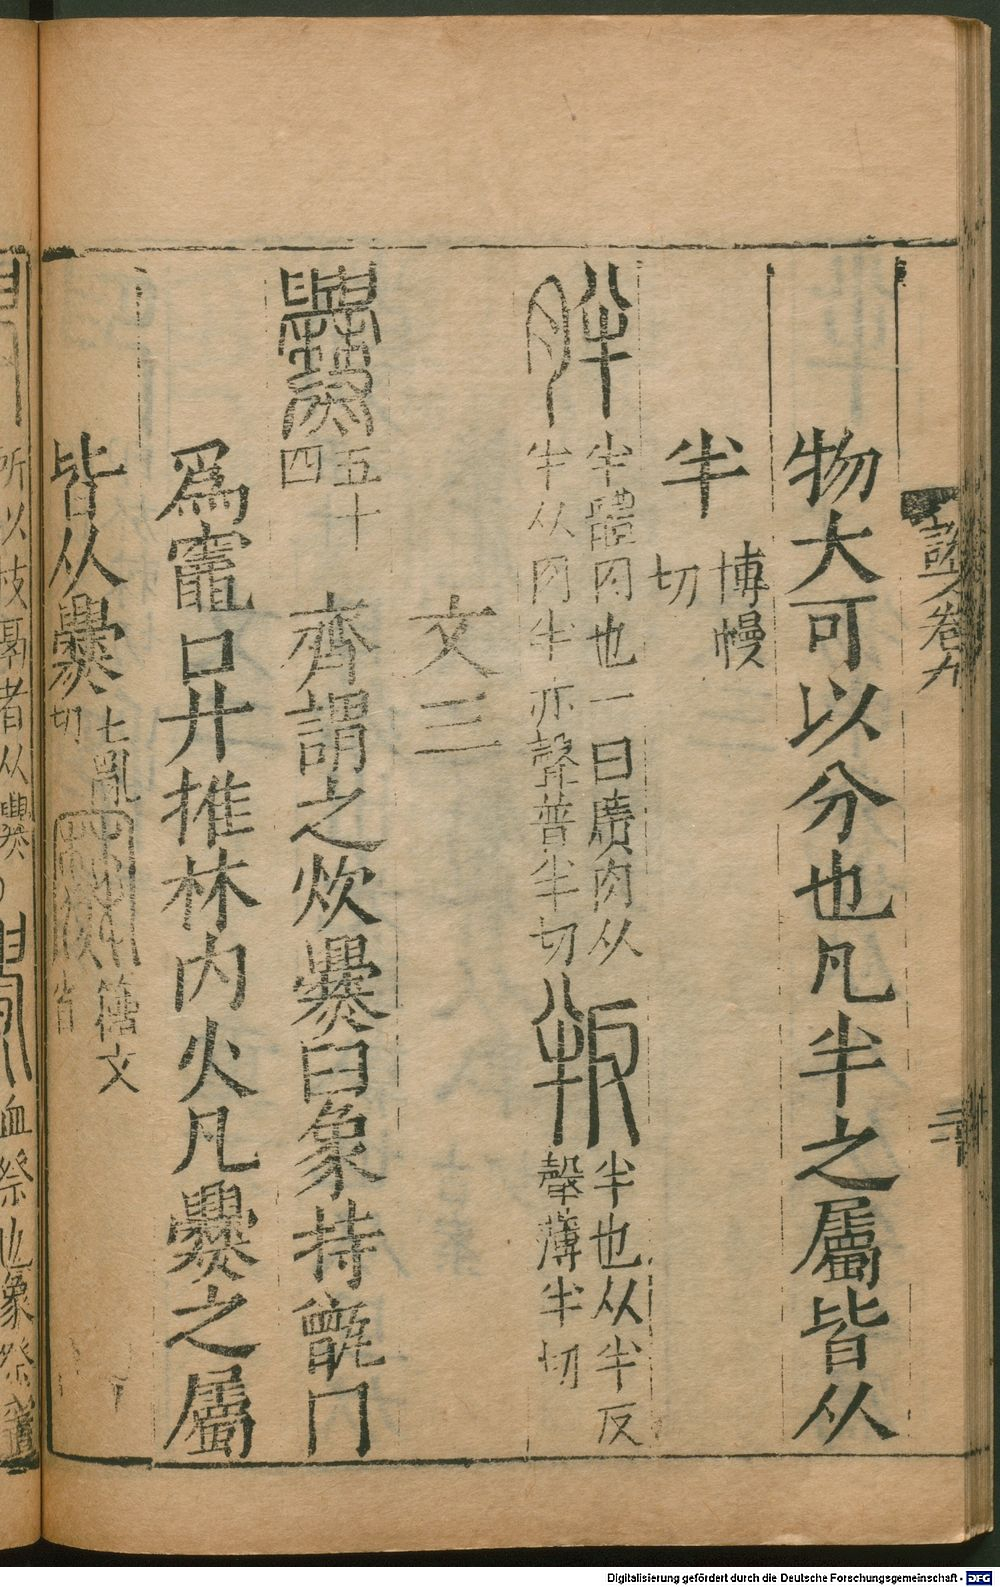 物大可以分也凡半之屬皆从
半博幔切
胖半體肉也一曰廣肉从半从肉半亦聲普半切叛半也从半反聲薄半切
文三
爨五十四齊謂之炊爨𦥑象持甑冂
爲竈口廾推林內火凡爨之屬
皆从爨七亂切 籒文省
所以枝鬲者从爨
血祭也象祭竈
Digitalisierung gefördert durch die Deutsche Forschungsgemeinschaft - DFG